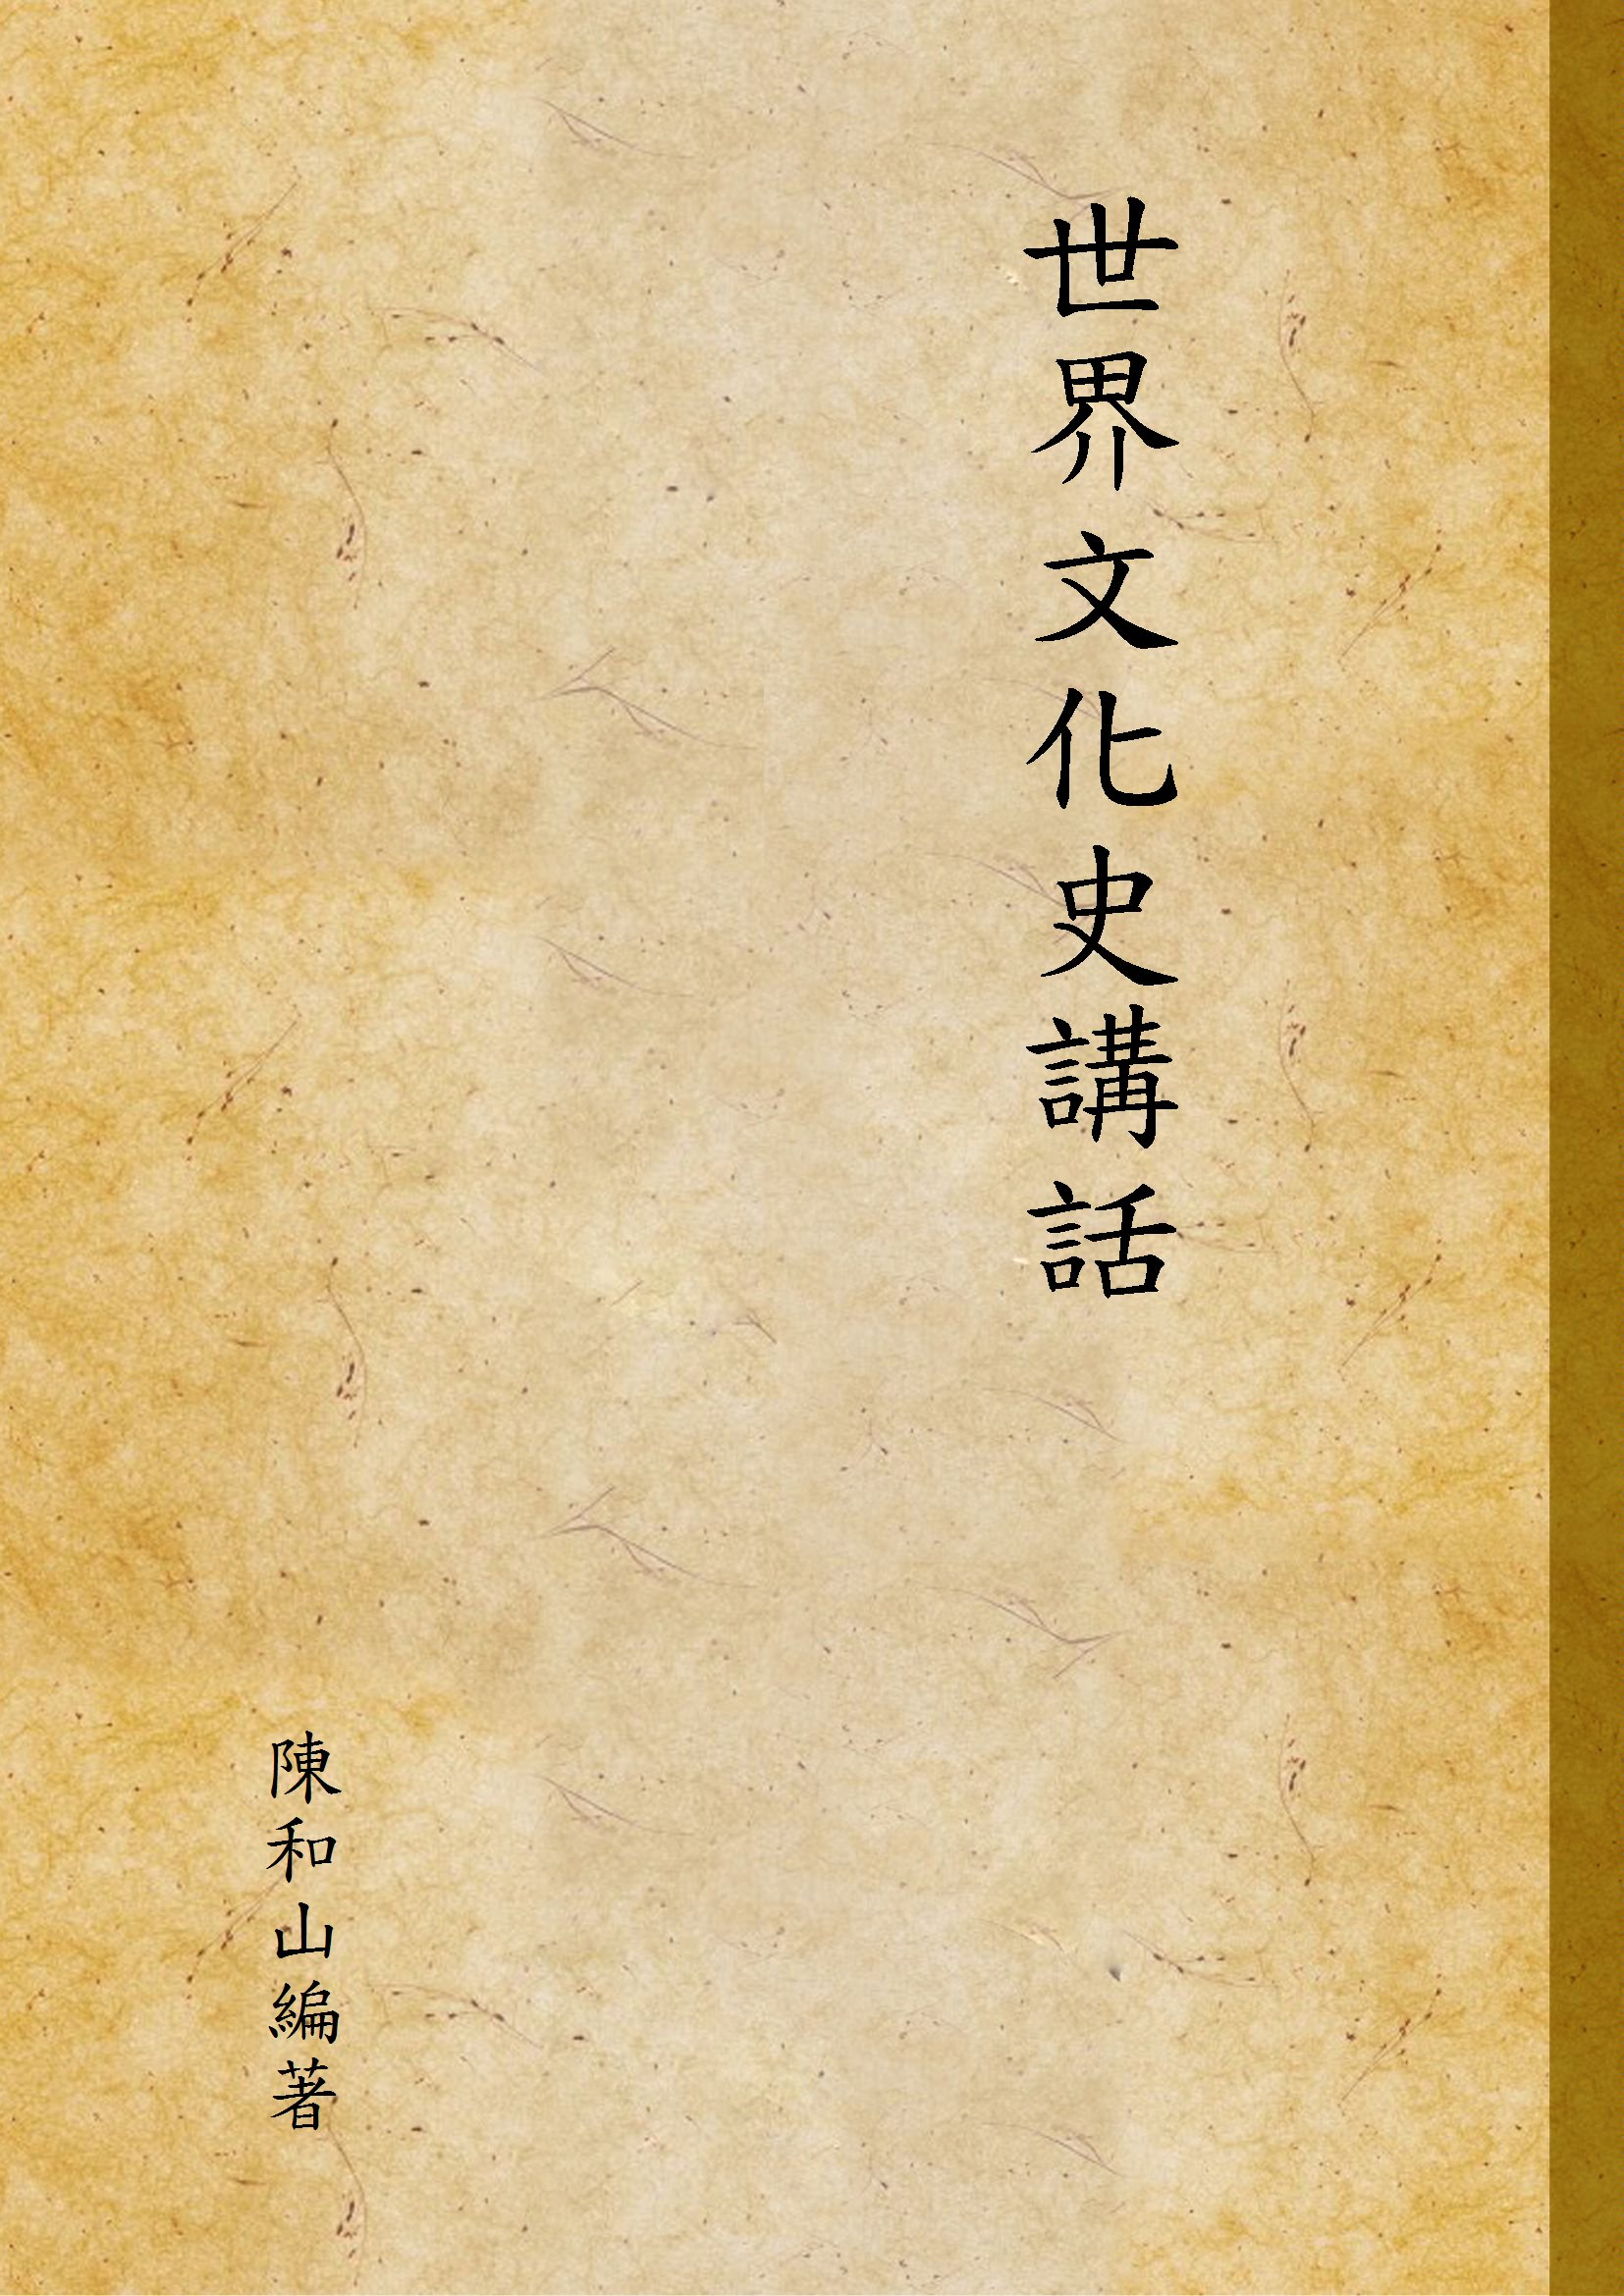 世界文化史講話
陳和山編著